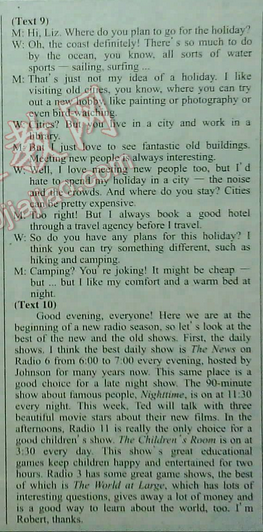 (Text 9)
M: Hi, Liz. Where do you plan to go for the holiday?
W: Oh, the coast definitely! There's so much to do
by the ocean, you know, all sorts of water
sports — sailing, surfing ...
M: That's just not my idea of a holiday. I like
visiting old cities, you know, where you can try
out a new like painting or photography or
even bird watching.
W: Cities? But live in a city and work in a
library.
M: But I just love to see fantastic old buildings.
Meeting new people is always interesting.
W: Well, I love meeting new people too, but I'd
hate to spend my holiday in a city — the noise
and the crowds. And where do you stay? Cities
can be pretty expensive.
M: Too right! But I always book a good hotel
through a travel agency before I travel.
W: So do you have any plans for this holiday? I
think you can try something different, such as
hiking and camping.
M: Camping? You're joking! It might be cheap —
but ... but I like my comfort and a warm bed at
night.
(Text 10)
Good evening, everyone! Here we are at the
beginning of a new radio season, so let's look at the
best of the new and the old shows. First, the daily
shows. I think the best daily show is The News on
Radio 6 from 6:00 to 7:00 every evening, hosted by
Johnson for many years now. This same place is a
good choice for a late night show. The 90-minute
show about famous people, Nighttime, is on at 11:30
every night. This week, Ted will talk with three
beautiful movie stars about their new films. In the
afternoons, Radio 11 is really the only choice for a
good children's show. The Children's Room is on at
3:30 every day. This show's great educational
games keep children happy and entertained for two
hours. Radio 3 has some great game shows, the best
of which is The World at Large, which has lots of
interesting questions, gives away a lot of money and
is a good way to learn about the world, too. I'm
Robert, thanks.